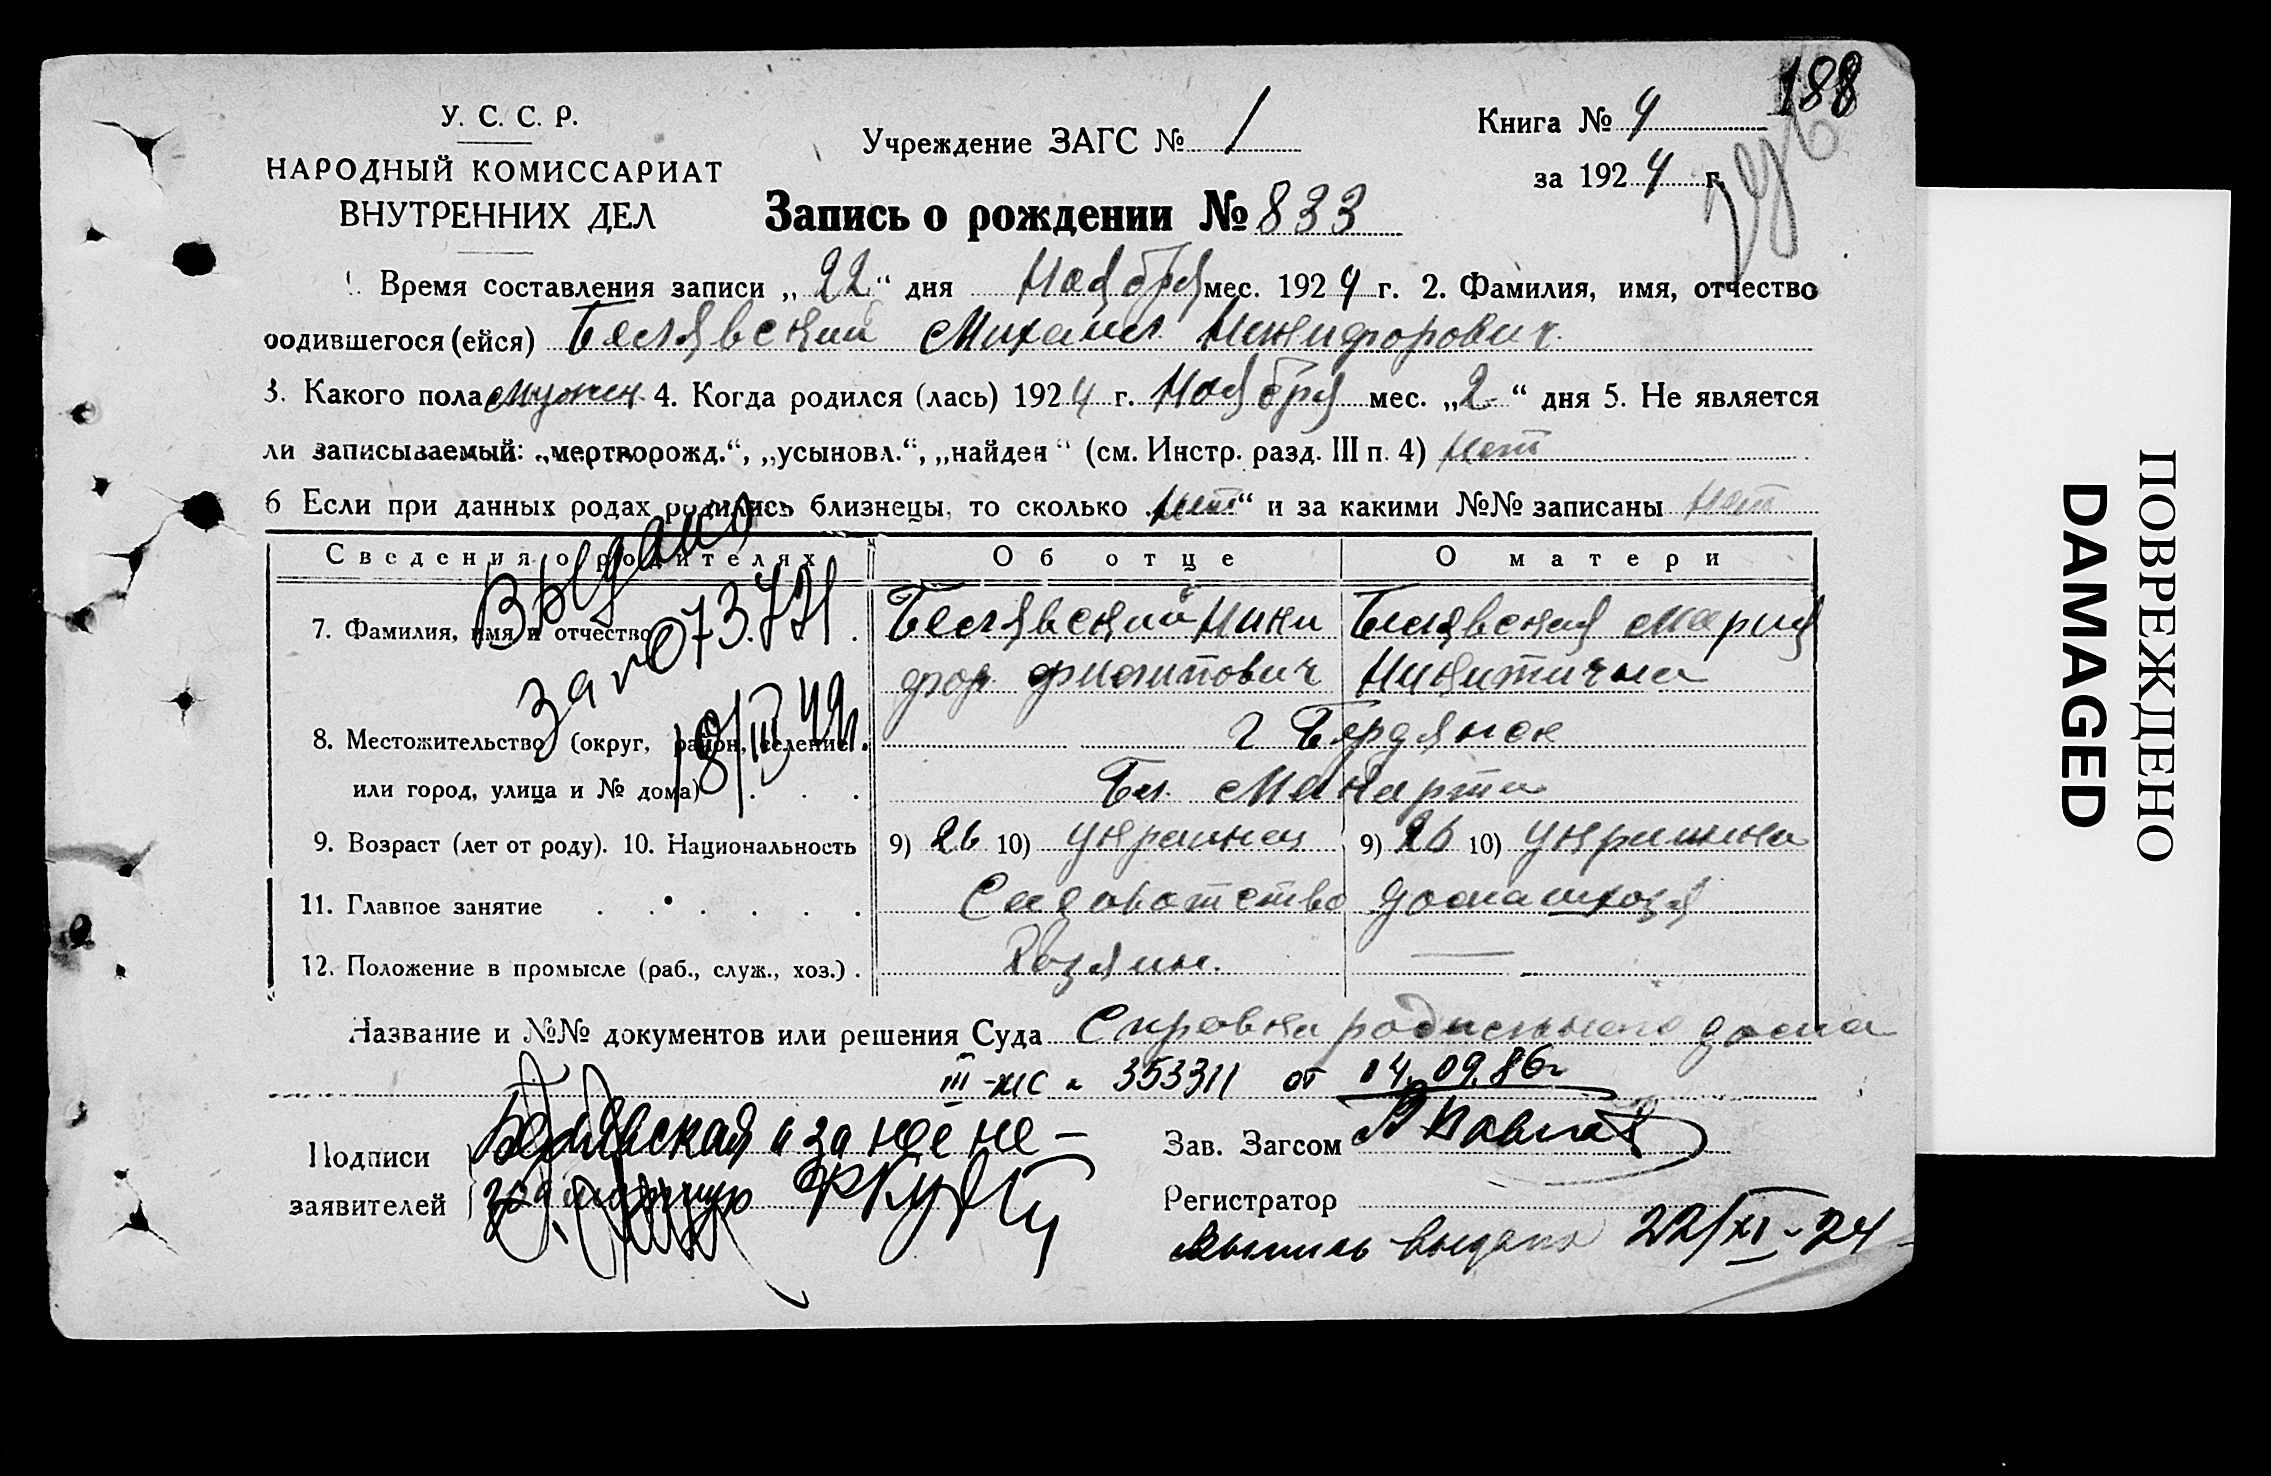 188
У. С. С. Р.
НАРОДНЫЙ КОМИССАРИАТ
ВНУТРЕННИХ ДЕЛ
Учреждение ЗАГС № 1
Книга № 4
за 1924 г.
Запись о рождении № 833
1. Время составления записи „22“ дня Ноября мес. 1924 г. 2. Фамилия, имя, отчество
родившегося (ейся) Белявский Михаил Никифорович
3. Какого пола мужск. 4. Когда родился (лась) 1924 г. Ноября мес. „2“ дня 5. Не является
ли записываемый: „мертворожд.“, „усыновл.“, „найден“ (см. Инстр. разд. III п. 4) Нет
6 Если при данных родах родились близнецы, то сколько „нет“ и за какими №№ записаны Нет
Сведения о родителях Об отце О матери
Выдано
за № 073.771
18/III 49г.
7. Фамилия, имя и отчество Белявский Ники Белявская Мария
фор Филиппович Никитична
8. Местожительство (округ, район, селение г Бердянск
или город, улица и № дома) Бл.
9. Возраст (лет от роду). 10. Национальность 9) 26 10) украинец 9) 26 10) украинка
11. Главное занятие Садоводство домашхоз
12. Положение в промысле (раб., служ., хоз.) Хозяин. —
Название и №№ документов или решения Суда Справка родильного дома
III-ЖС № 353311 от 04.09.86г
Подписи
заявителей
Белявская и за нее не-
грамотную
Зав. Загсом
Регистратор
выпись выдана 22/XI-24
ПОВРЕЖДЕНО
DAMAGED